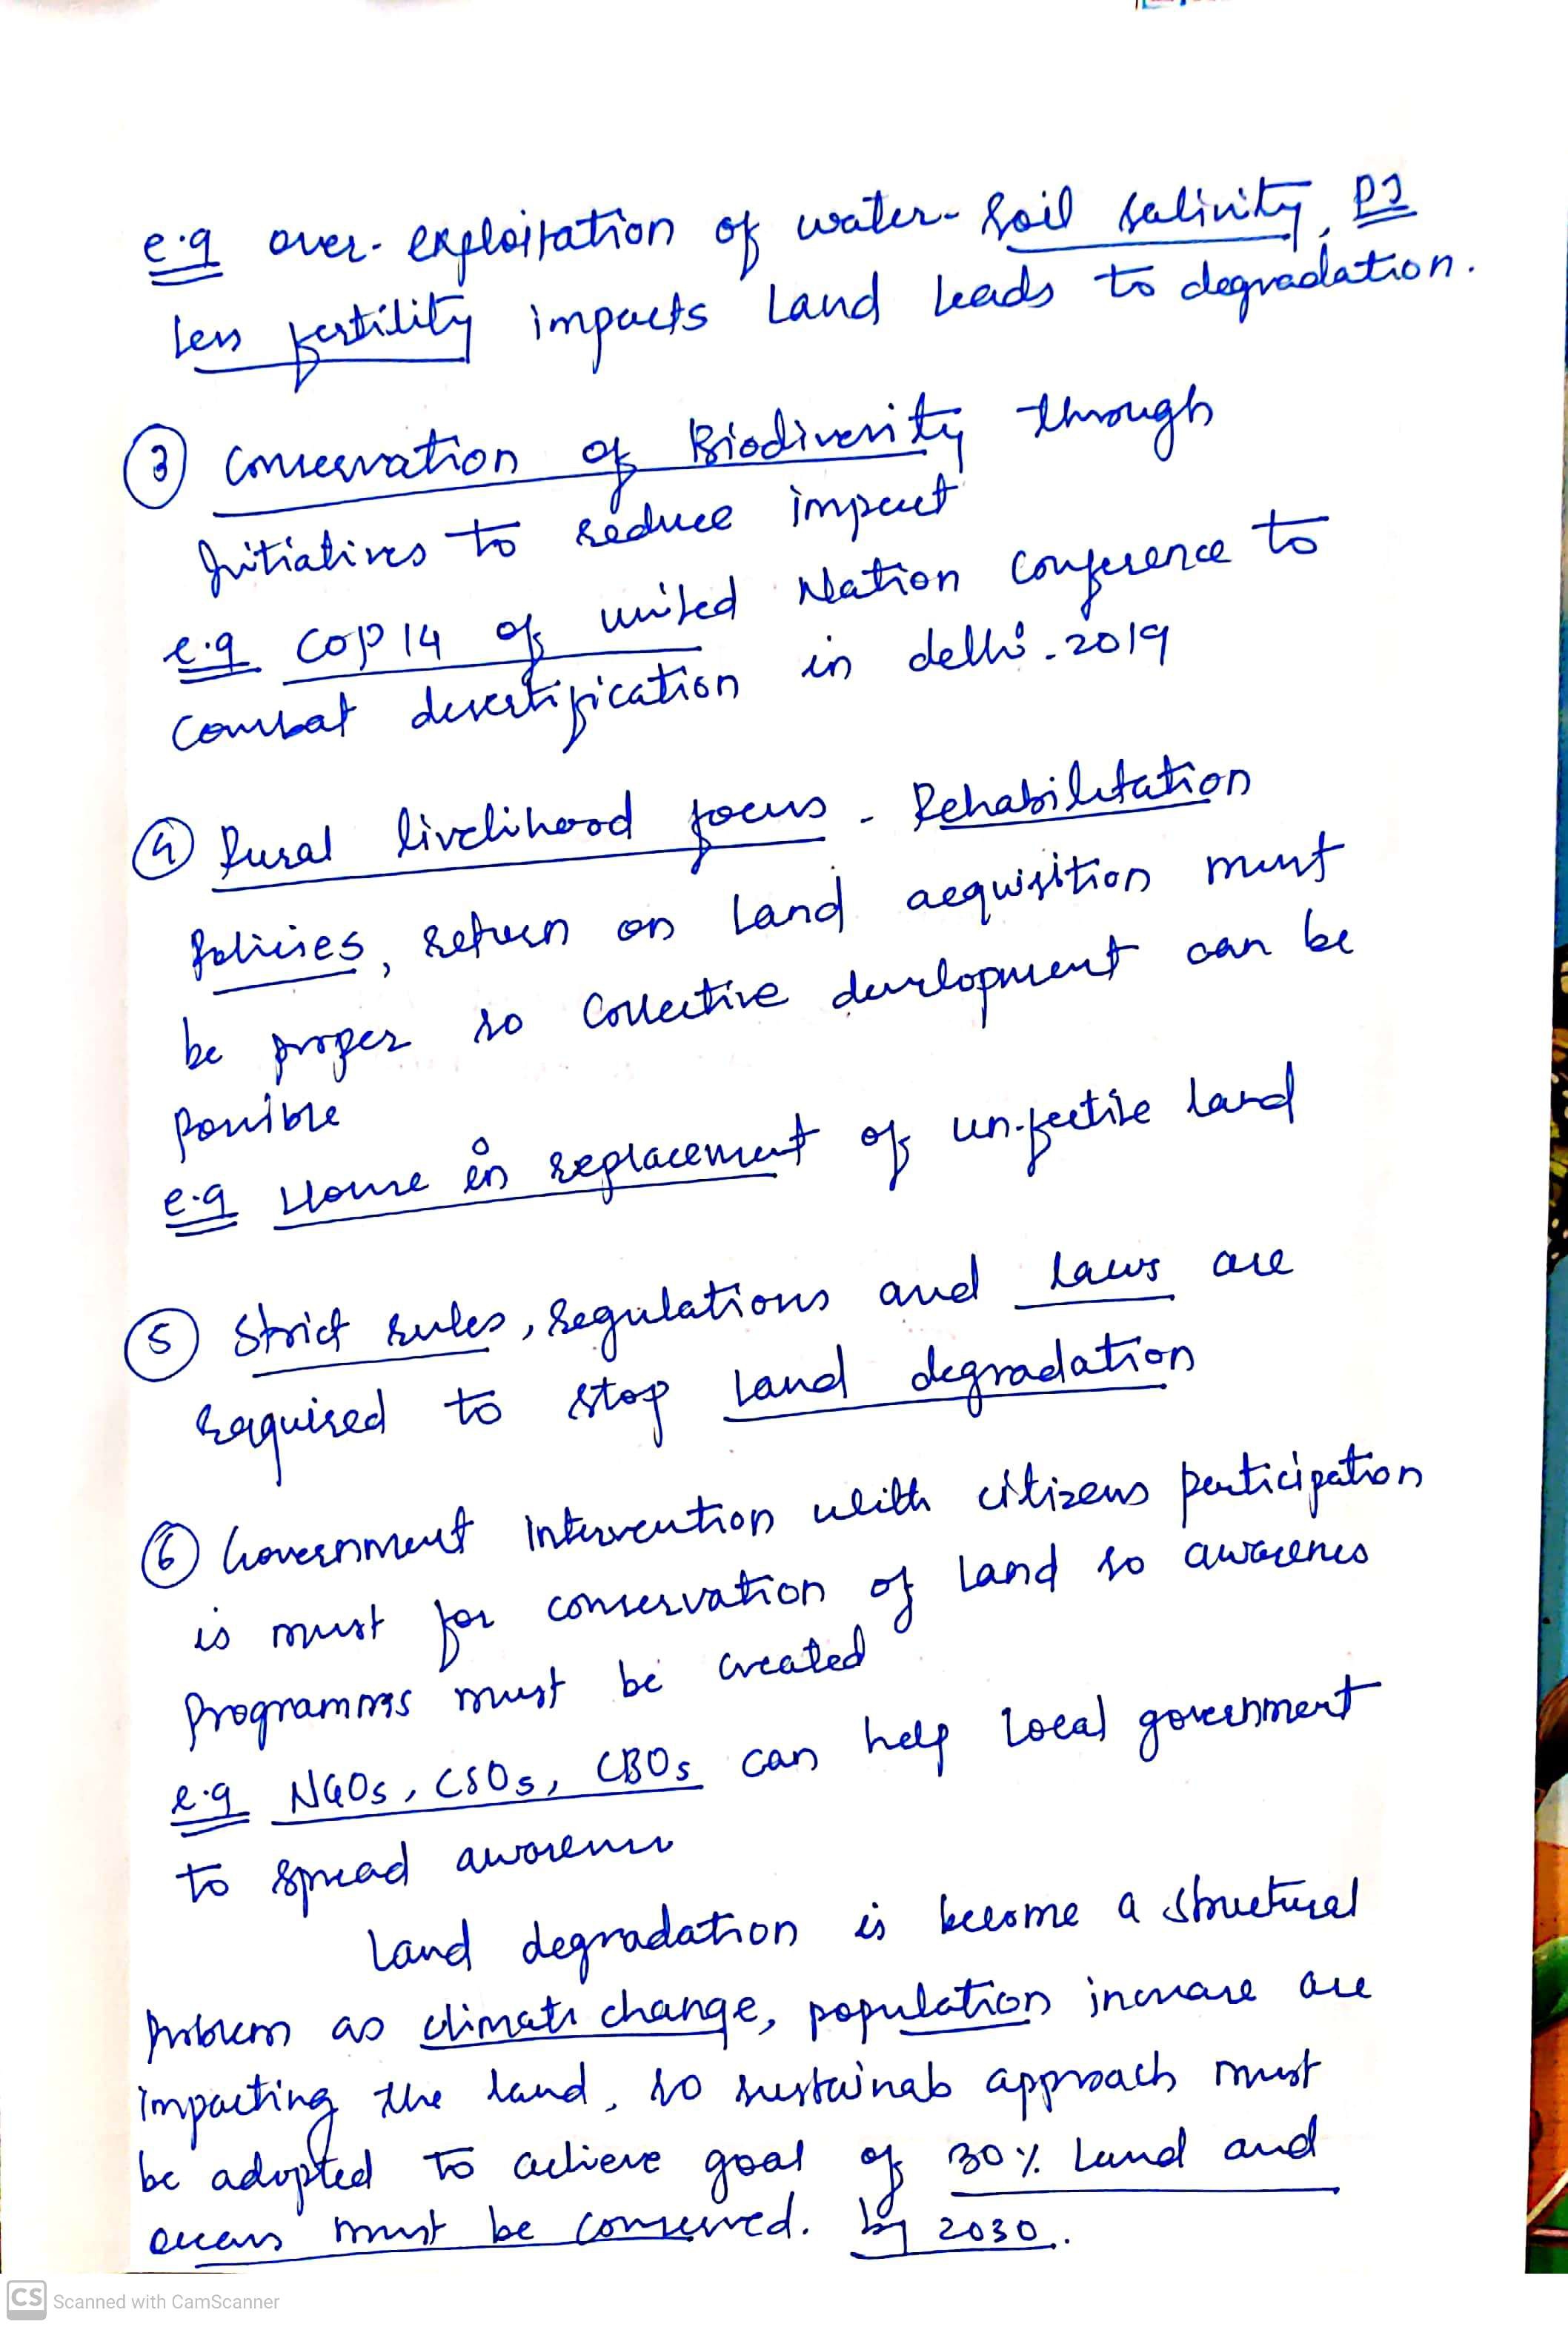 e.g over-exploitation of water- soil salivity,
less fertility impacts Land leads to degradation.
③ Conservation of Biodiversity through
Initiatives to reduce impact
e.g COP 14 of united Nation Conference to
combat desertification in delhi - 2019
④ Rural livelihood focus - Rehabilitation
Policies, return on Land acquisition must
be proper so Collective development can be
Possible
e.g House in replacement of un-fertile land
⑤ Strict rules, regulations and Laws are
required to stop Land degradation
⑥ Government Intervention with citizens participation
is must for conservation of Land so awarenes
Programms must be created
e.g NGOs, CSOs, CBOs can help Local government
to spread awareness
Land degradation is become a structural
Problem as climate change, population increase are
impacting the land, so sustainab approach must
be adopted to achieve goal of 30% Land and
must be conserved. by 2030.
CS Scanned with CamScanner